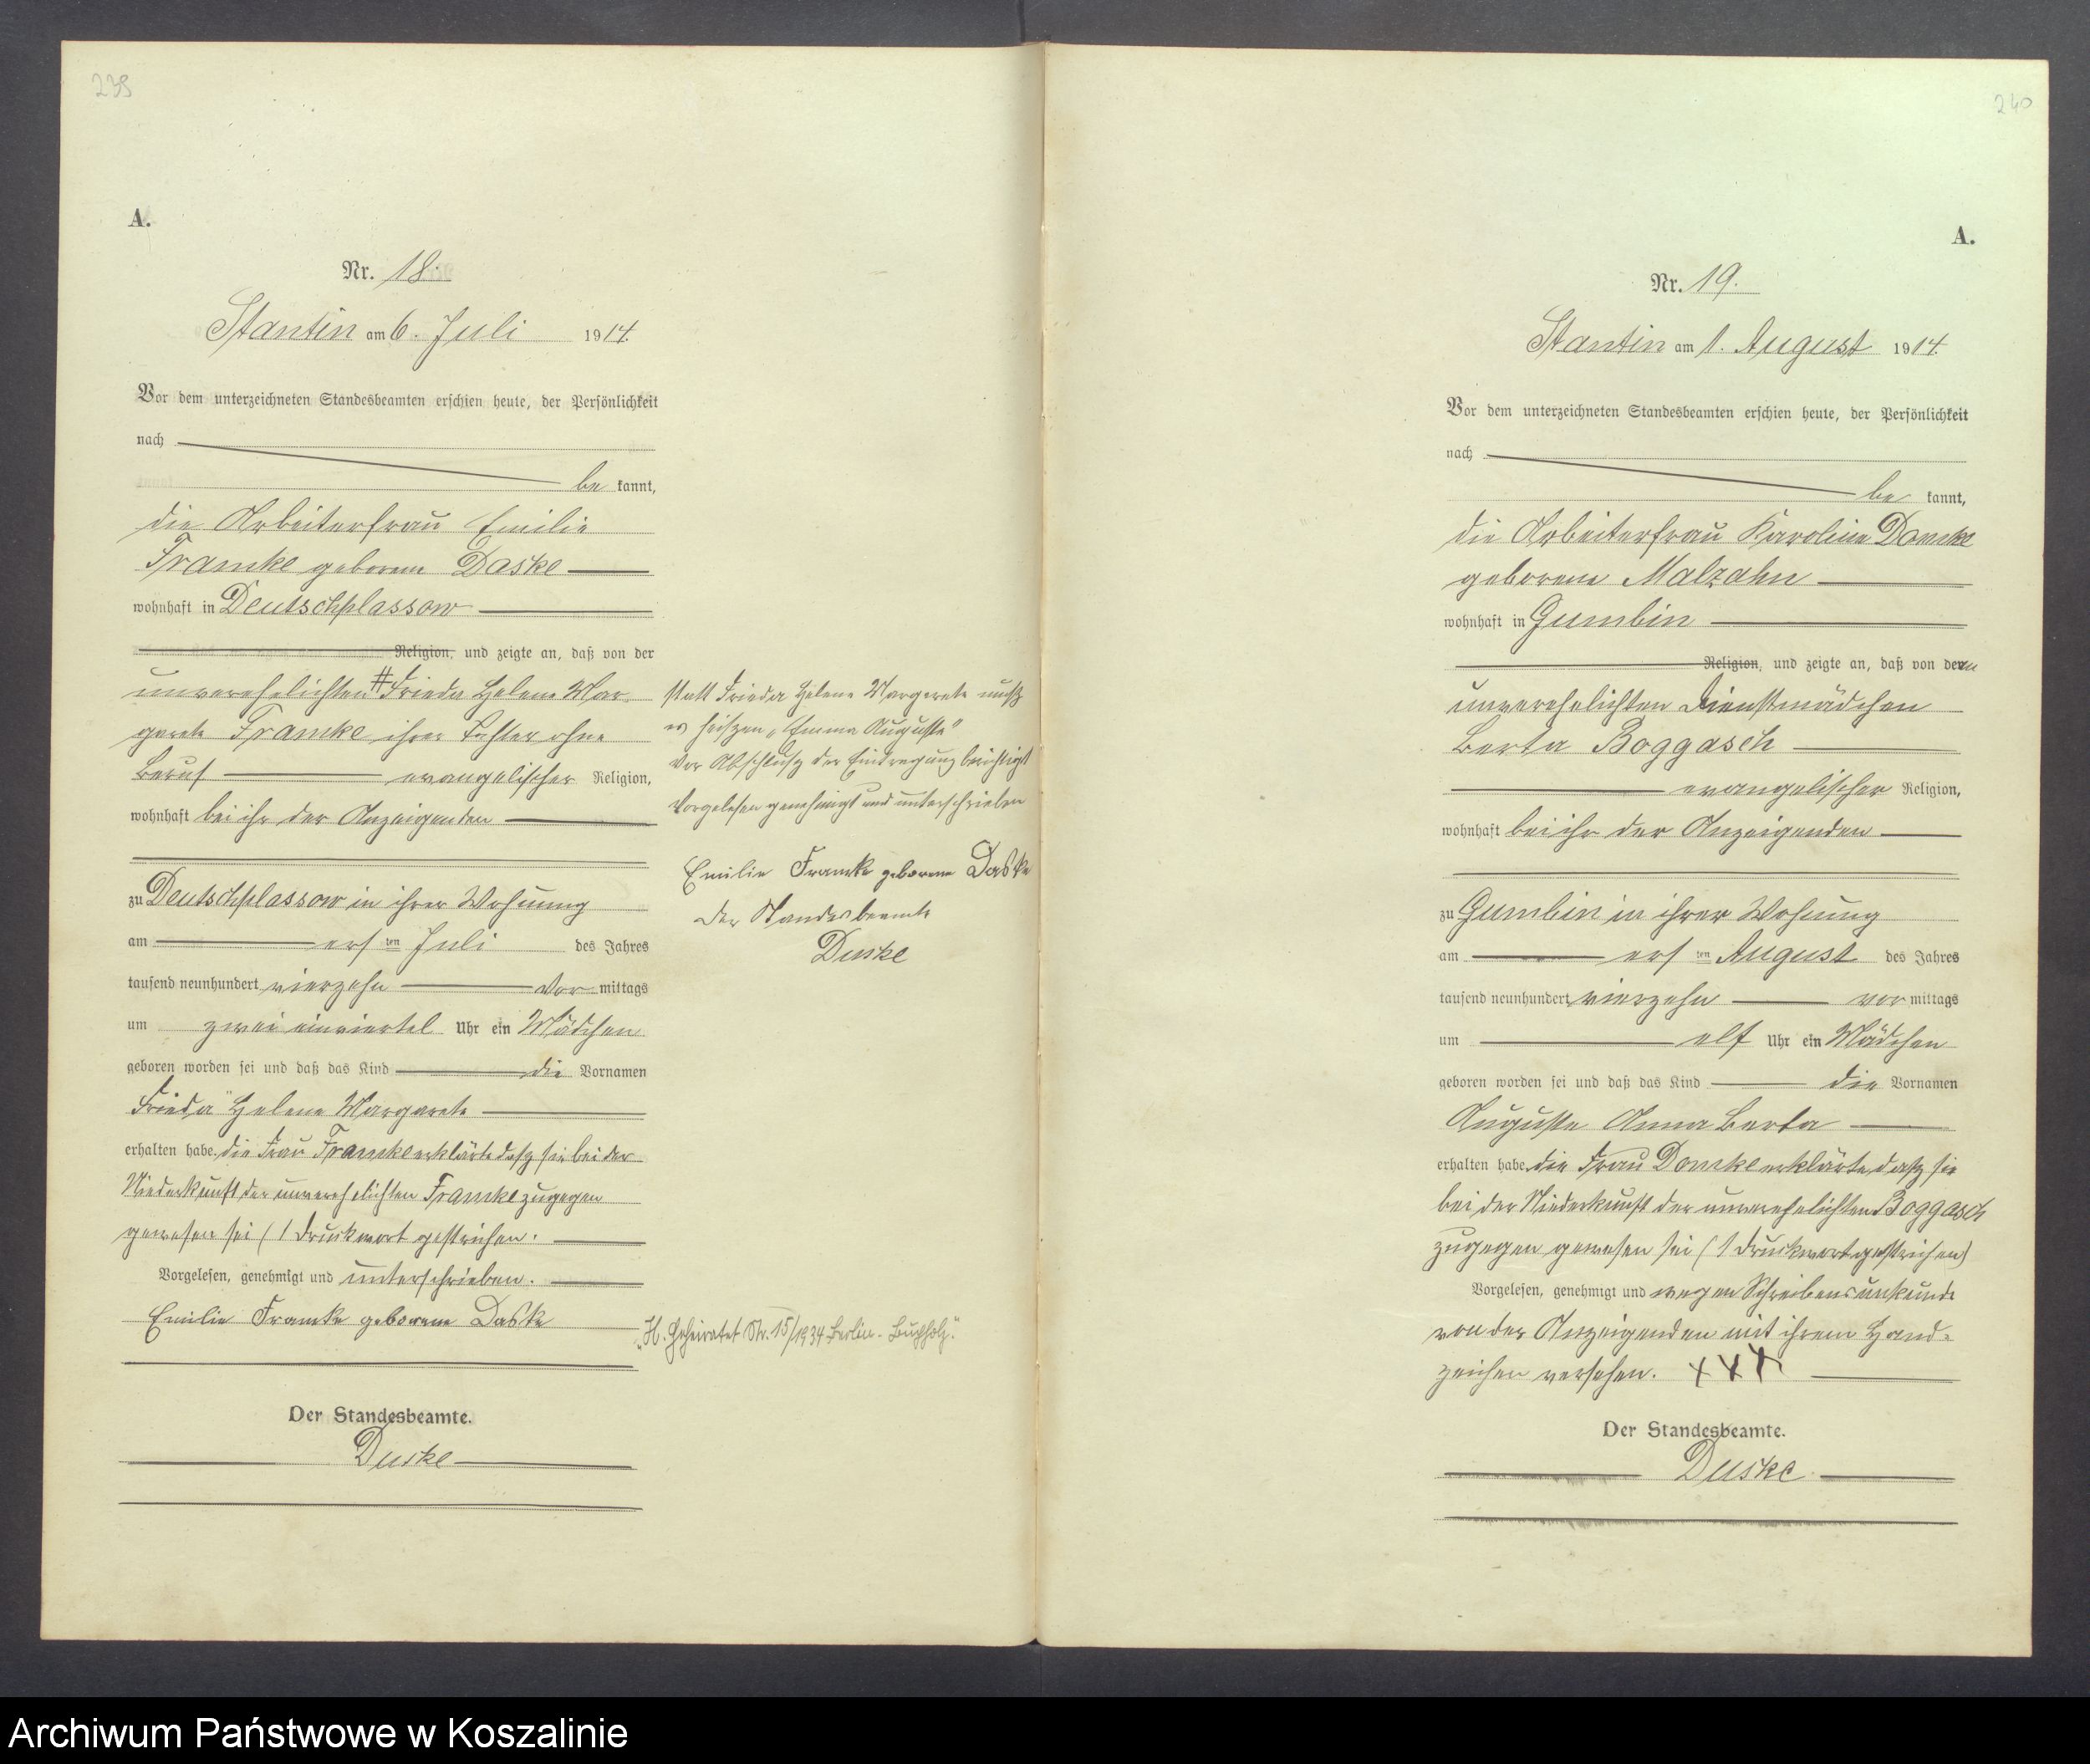 239
A.
Nr. 18.
Stantin am 6. Juli 1914.
Vor dem unterzeichneten Standesbeamten erschien heute, der Persönlichkeit
nach
be kannt,
die Arbeiterfrau Emilie
Framke geborene Daske
wohnhaft in Deutschplassow
Religion, und zeigte an, daß von der
unverehelichten # Frieda Helene Mar-
garete Framke ihrer Tochter ohne
Beruf evangelischer Religion,
wohnhaft bei ihr der Anzeigenden
zu Deutschplassow in ihrer Wohnung
am ersten Juli des Jahres
tausend neunhundert vierzehn Vor mittags
um zwei einviertel Uhr ein Mädchen
geboren worden sei und daß das Kind die Vornamen
Frieda Helene Margarete
erhalten habe. die Frau Framke erklärte dasz sie bei der
Niederkunft der unverehelichten Framke zugegen
gewesen sei (1 Druckwort gestrichen.
Vorgelesen, genehmigt und unterschrieben.
Emilie Framke geborene Daske
Der Standesbeamte.
Duske
statt Frieda Helene Margarete musz
es heiszen „Emma Auguste"
Vor Abschlusz der Eintragung berichtigt
Vorgelesen genehmigt und unterschrieben
Emilie Framke geborene Daske
Der Standesbeamte
Duske
„H. Geheiratet Nr. 15/1934 Berlin-Buchholz."
240
A.
Nr. 19.
Stantin am 1. August 1914.
Vor dem unterzeichneten Standesbeamten erschien heute, der Persönlichkeit
nach
be kannt,
die Arbeiterfrau Karoline Domke
geborene Malzahn
wohnhaft in Gumbin
Religion, und zeigte an, daß von dem
unverehelichten Dienstmädchen
Berta Boggasch
evangelischer Religion,
wohnhaft bei ihr der Anzeigenden
zu Gumbin in ihrer Wohnung
am ersten August des Jahres
tausend neunhundert vierzehn vor mittags
um elf Uhr ein Mädchen
geboren worden sei und daß das Kind die Vornamen
Auguste Anna Berta
erhalten habe. die Frau Domke erklärte, dasz sie
bei der Niederkunft der unverehelichten Boggasch
zugegen gewesen sei (1 Druckwort gestrichen)
Vorgelesen, genehmigt und wegen Schreibensunkunde
von der Anzeigenden mit ihrem Hand-
zeichen versehen. +++
Der Standesbeamte.
Duske
Archiwum Państwowe w Koszalinie